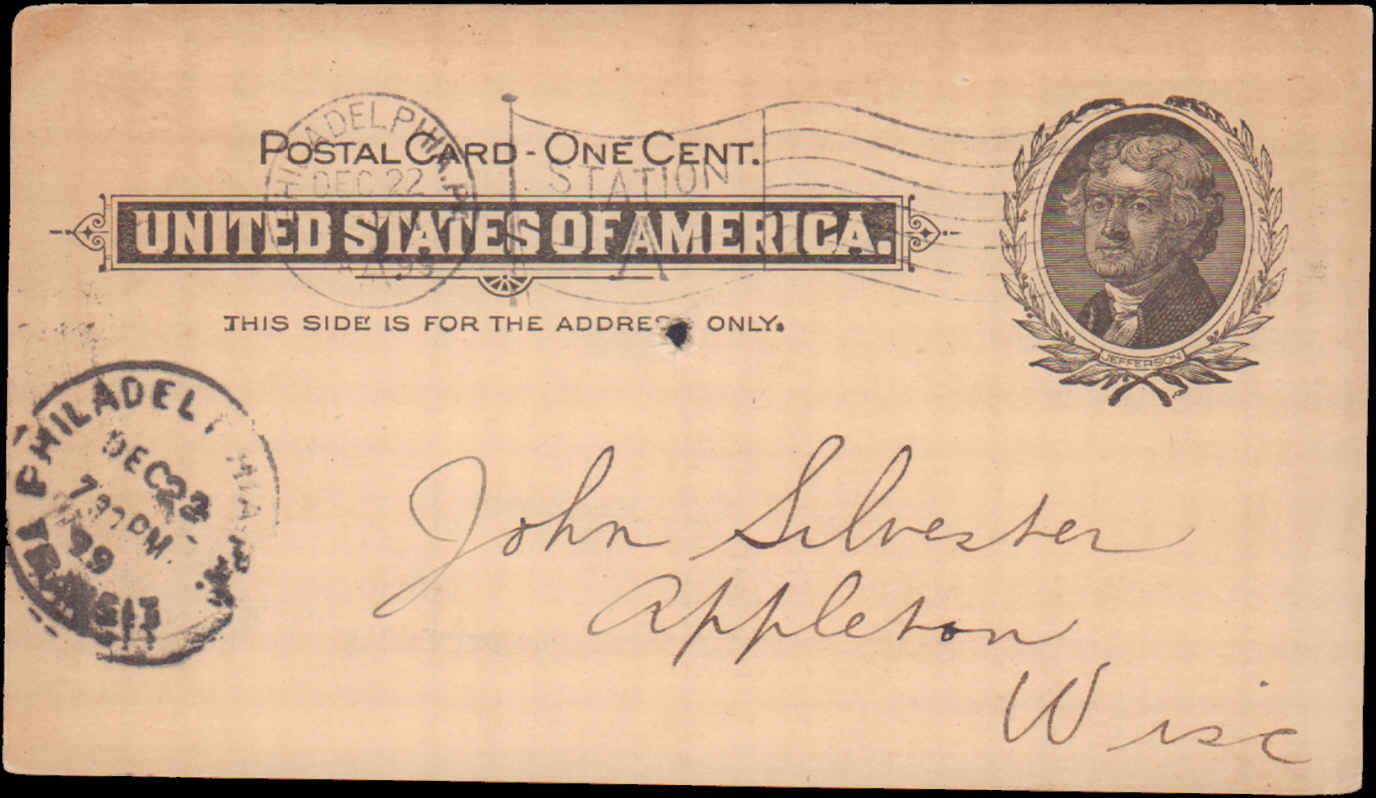 PHILADELPHIA.PA.
DEC 22
STATION
A
POSTAL CARD - ONE CENT.
UNITED STATES OF AMERICA.
THIS SIDE IS FOR THE ADDRESS ONLY.
JEFFERSON
PHILADELPHIA.PA.
DEC 23
7 30 PM
99
TRANSIT
John Silvester
Appleton
Wisc